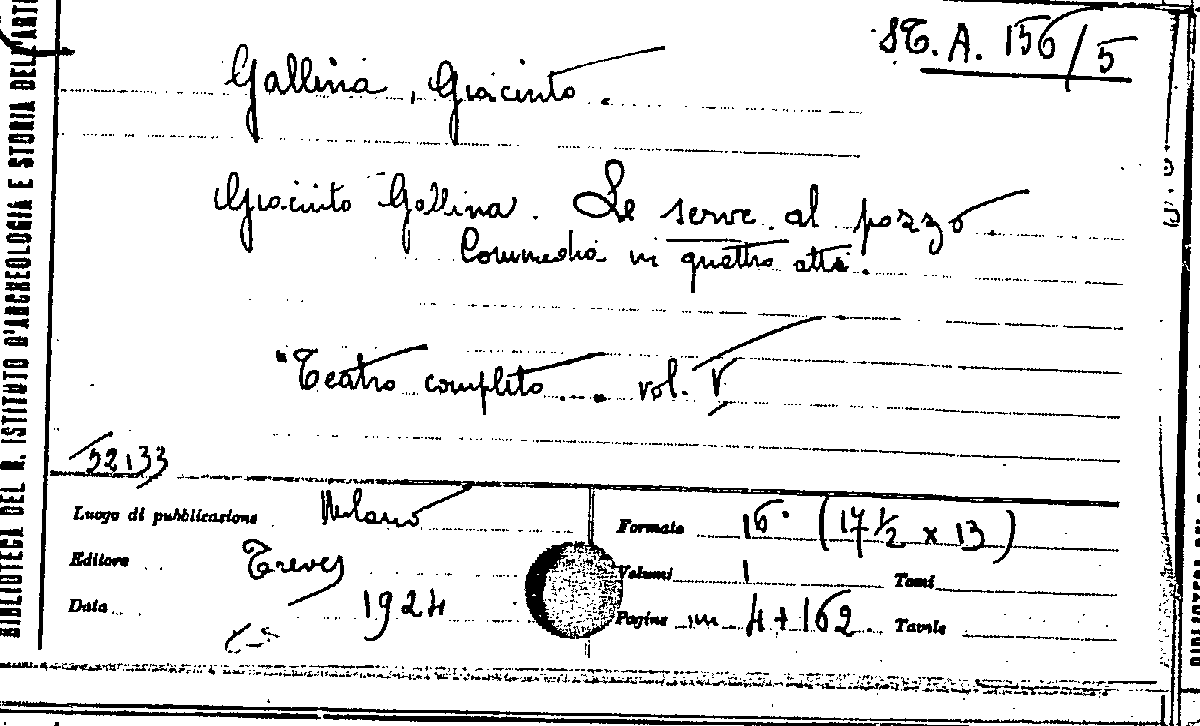 ST. A. 156/5
Gallina, Giacinto.
Giacinto Gallina. Le serve al pozzo.
Commedia in quattro atti.
"Teatro completo... vol. V
52133
Luogo di pubblicazione Milano
Editore Treves
Data 1924
Formato 16° (17 1/2 x 13)
Volumi 1 Tomi
Pagine m 4+162. Tavole
BIBLIOTECA DEL R. ISTITUTO D'ARCHEOLOGIA E STORIA DELL'ARTE